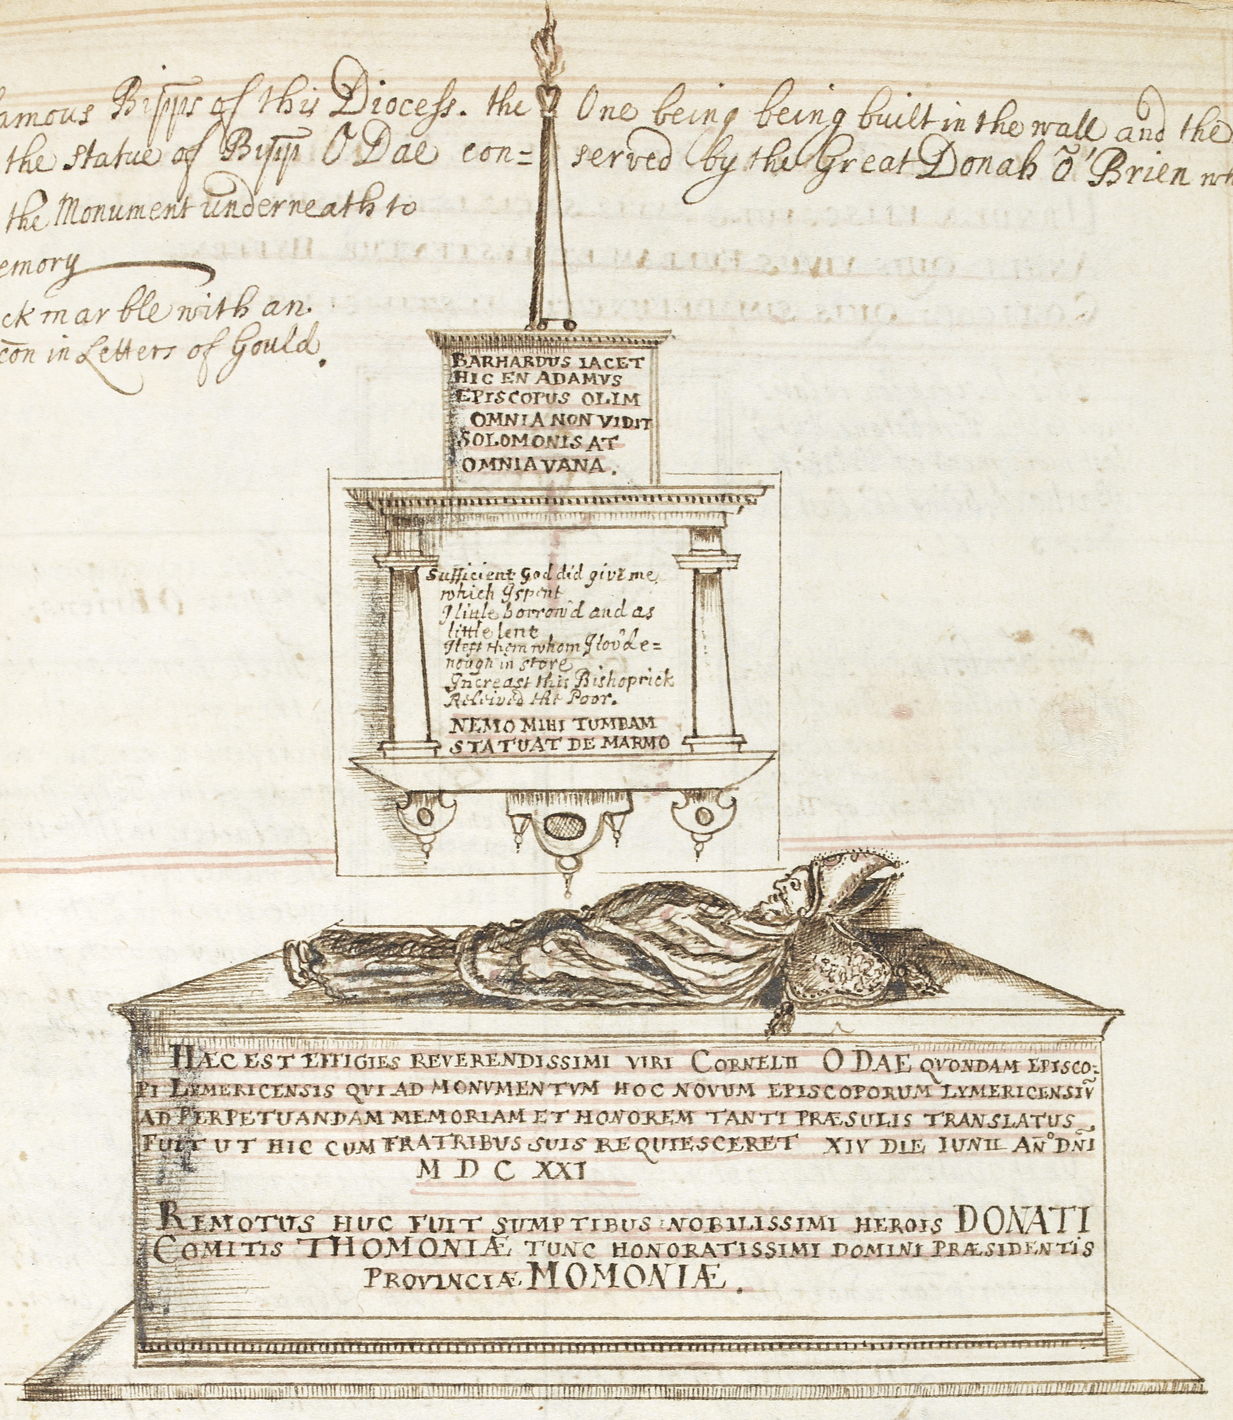 famous Bipps of this Diocess. the One being being built in the wall and the
the statue of Bipp O Dae con= served by the Great Donah o' Brien
the Monument underneath to
emory
ck marble with an
con in Letters of Gould.
BARHARDUS IACET
HIC EN ADAMVS
EPISCOPUS OLIM
OMNIA NON VIDIT
SOLOMONIS AT
OMNIA VANA.
Sufficient God did give me
which I spent
I litile borrow'd and as
little lent
I left them whom I lov'd e=
nough in store
Increast this Bishoprick
Releived the Poor.
NEMO MIHI TUMBAM
STATUAT DE MARMO
HÆC EST EFFIGIES REVERENDISSIMI VIRI CORNELII O DAE QVONDAM EPISCO-
PI LYMERICENSIS QVI AD MONVMENTVM HOC NOVUM EPISCOPORUM LYMERICENSIŨ
AD PERPETUANDAM MEMORIAM ET HONOREM TANTI PRÆSULIS TRANSLATUS
FUIT UT HIC CUM FRATRIBUS SUIS REQUIESCERET XIV DIE IUNII AN̊ DÑI
M D C XXI
REMOTUS HUC FUIT SUMPTIBUS NOBILISSIMI HEROIS DONATI
COMITIS THOMONIÆ TUNC HONORATISSIMI DOMINI PRÆSIDENTIS
PROVINCIÆ MOMONIÆ.